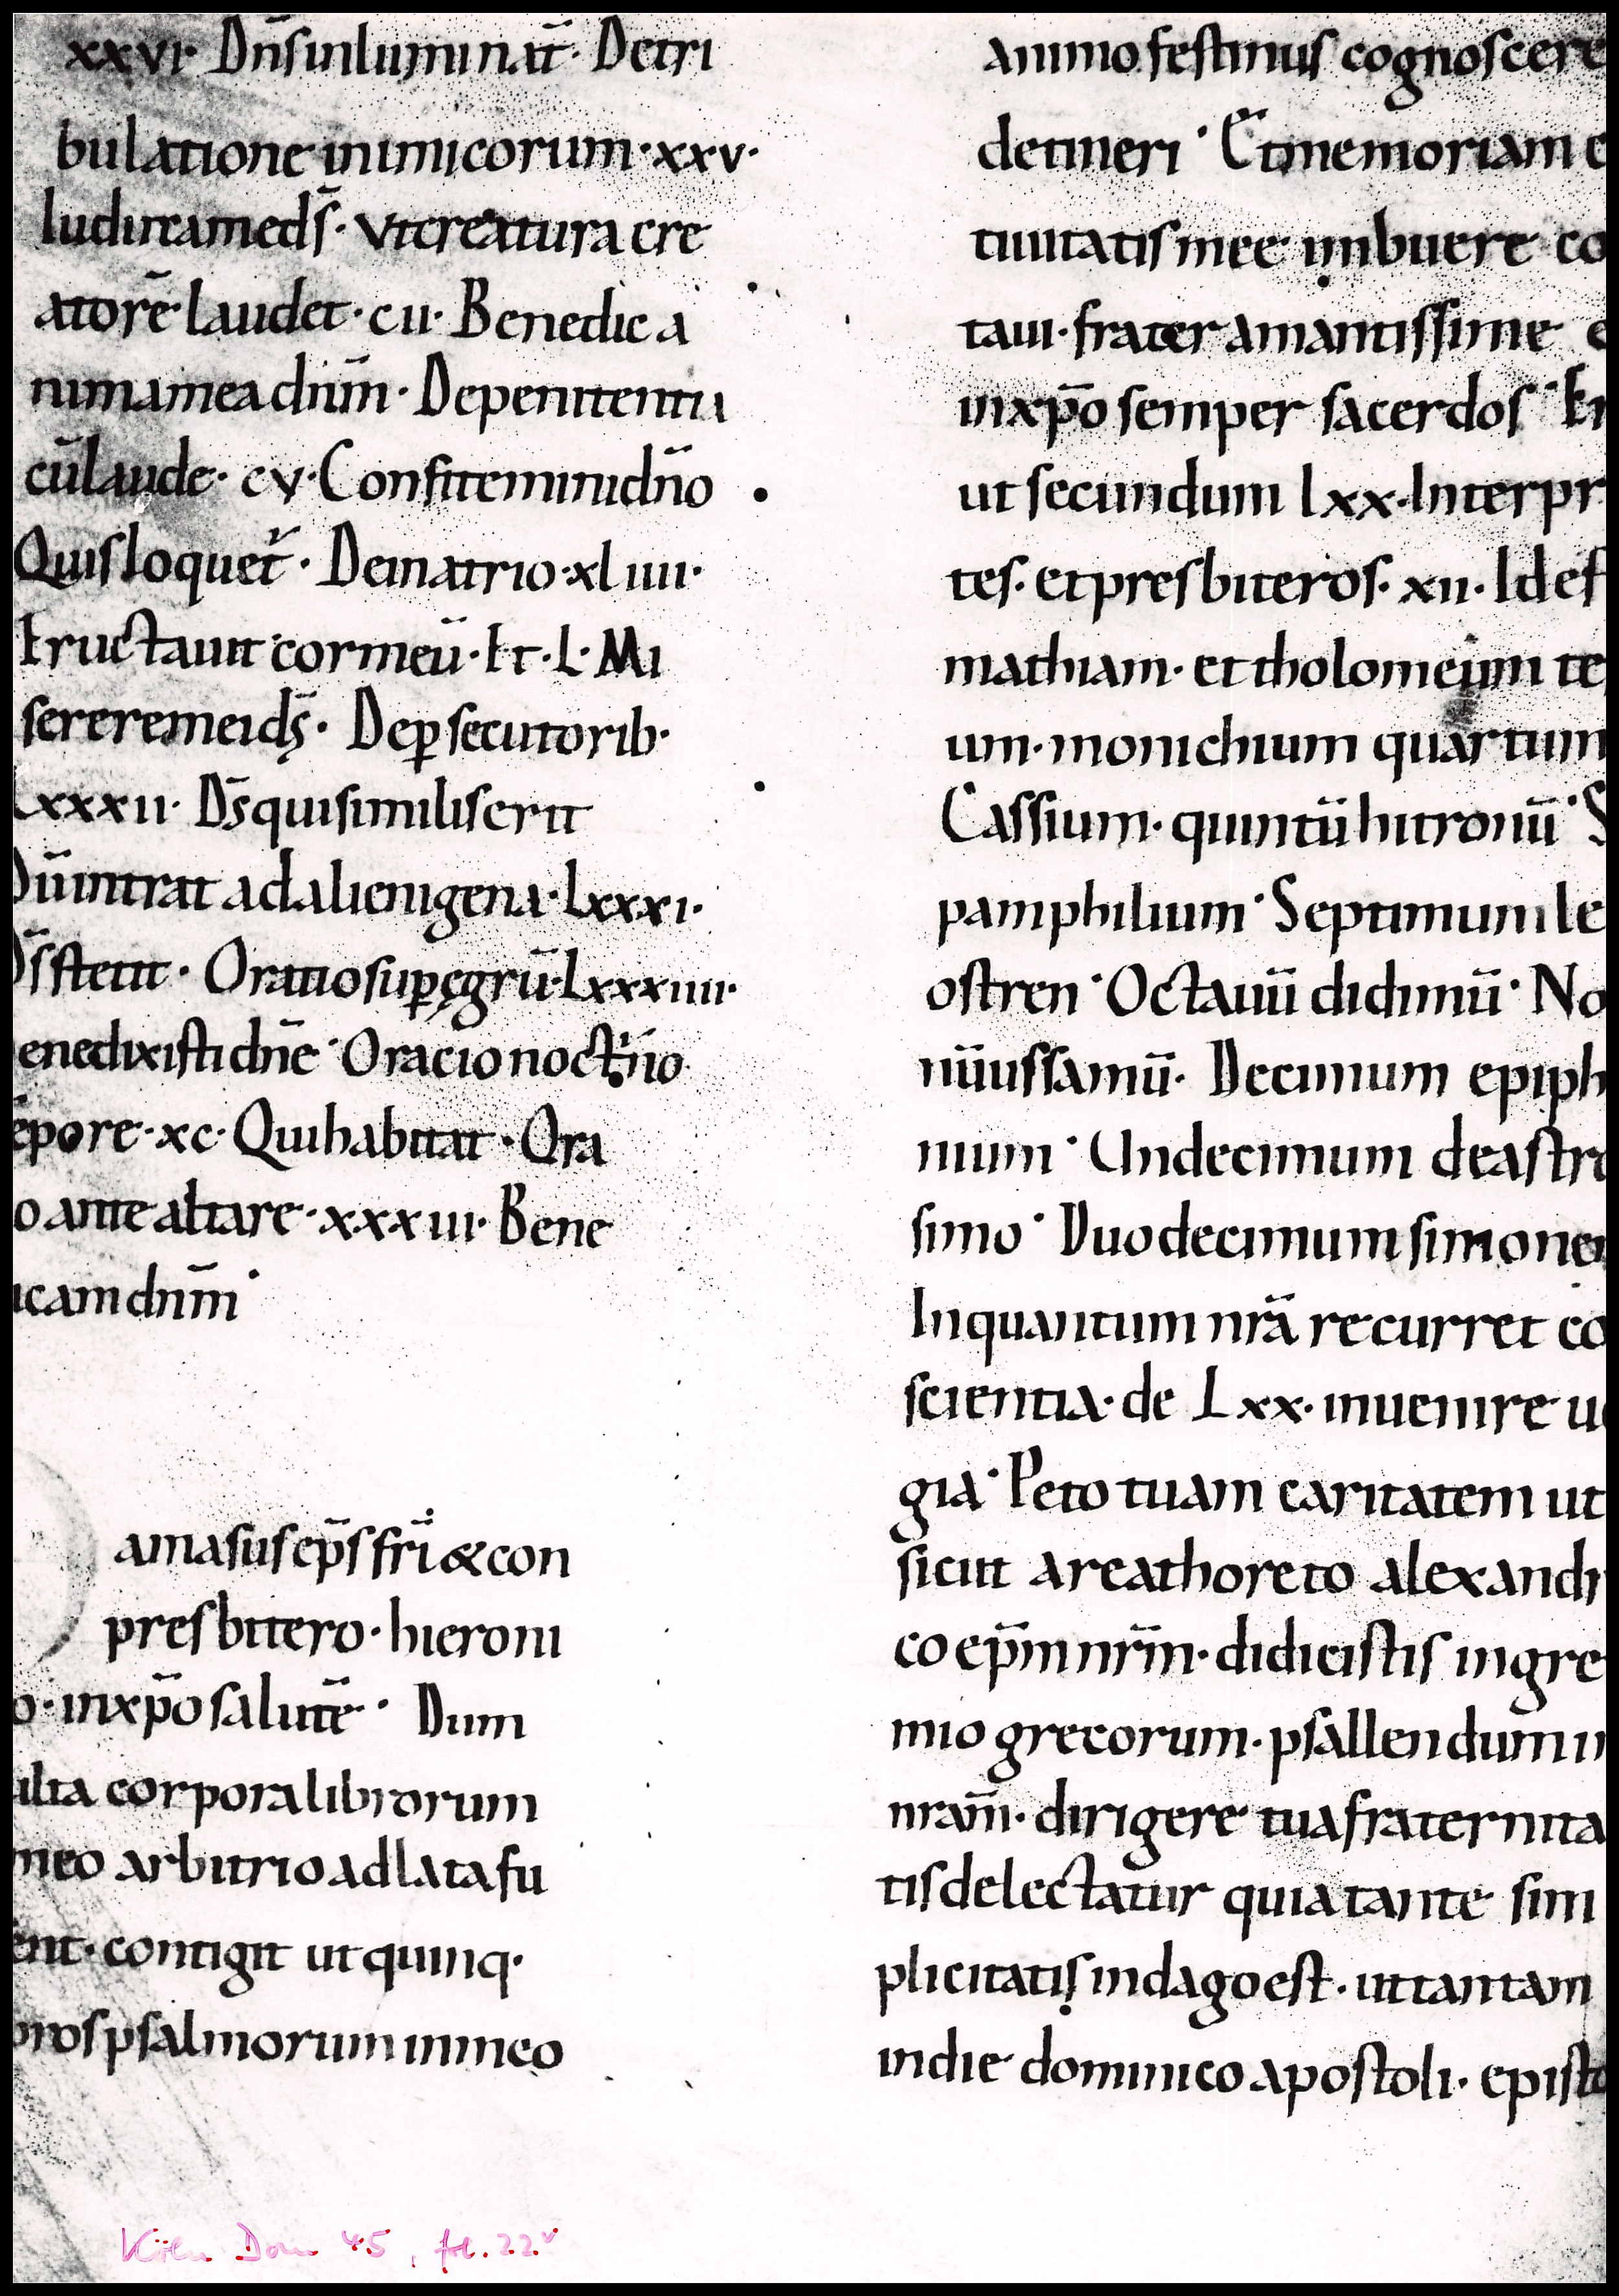 xxvi· Dn̄sinluminat̄· Detri
bulatione inimicorum·xxv·
ludireameds̄· vtcreatura cre
atorē laudet· cii· Benedic a
nimameadnm̄· Depenitentia
cūlaude· cv· Confiteminidn̄o
Quisloquet̄· Dematrio·xliiii·
Eructauit cormeū· Et· L· Mi
sereremeids̄· Dep̱secutorib·
Lxxxii· Ds̄quisimiliserit
Dūintrat adalienigena·Lxxxi·
Ds̄stetit· Oratiosup̱ęgrū·Lxxxiiii·
enedixistidn̄e· Oracionoct̄no
ēpore·xc· Quihabitat· Ora
o antealtare·xxxiii· Bene
icamdnm̄·
amasusep̄sfrī&con
presbitero· hieroni
o· inxp̄osalutē· Dum
ilia corporalibrorum
meo arbitrioadlatafu
ent· contigit utquinq·
brospsalmoruminmeo
animofestinus cognoscere
detineri· Etmemoriam e
tiuitatismee imbuere co
taui·frateramantissime
inxp̄o semper sacerdos· Et
ut secundum lxx·Interpr
tes· etpresbiteros· xii· Idest
mathiam· et tholomeum te
um·monichium quartum
Cassium· quintūhitronū· S
pamphilium· Septimumle
ostren· Octauū didimū· No
nūiussamū· Decimum epiph
nium· Undecimum deastro
simo· Duodecimumsimonem
Inquantum nrā recurret co
scientia· de Lxx· inuenire ue
gia· Peto tuam caritatem ut
sicut areathoreto alexandr
co ep̄mnrm̄· didicistis ingre
mio grecorum· psallendum in
nram̄· dirigere tuafraternita
tisdelectatur quiatante sim
plicitatis indagoest· uttantam
indie dominicoapostoli· episto
Köln Dom 45, fol. 22ᵛ